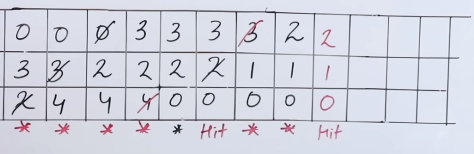 0 0 0 3 3 3 3 2 2
3 3 2 2 2 2 1 1 1
2 4 4 4 0 0 0 0 0
* * * * * Hit * * Hit